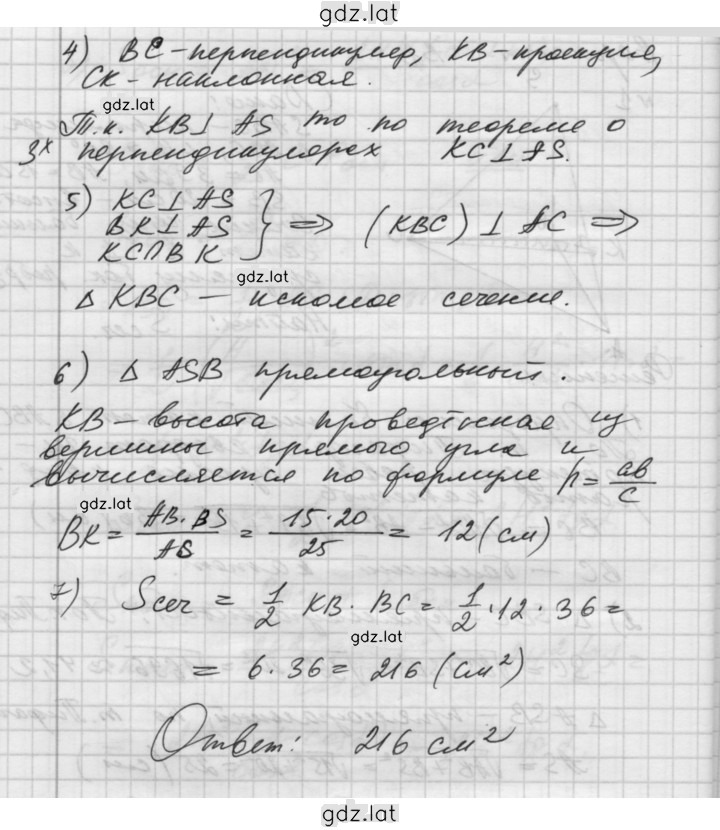 gdz.lat
4) BC - перпендикуляр, KB - проекция,
CK - наклонная.
gdz.lat
Т.к. KB⊥AS то по теореме о
3х перпендикулярах KC⊥AS.
5) KC⊥AS
BK⊥AS } ⇒ (KBC) ⊥ AC ⇒
KC∩BK
gdz.lat
Δ KBC - искомое сечение.
6) Δ ASB прямоугольный.
KB - высота проведённая из
вершины прямого угла и
вычисляется по формуле h = ab/c
gdz.lat
BK = AB·BS/AS = 15·20/25 = 12 (см)
7) Sсеч = 1/2 KB · BC = 1/2 · 12 · 36 =
gdz.lat
= 6·36 = 216 (см²)
Ответ: 216 см²
gdz.lat